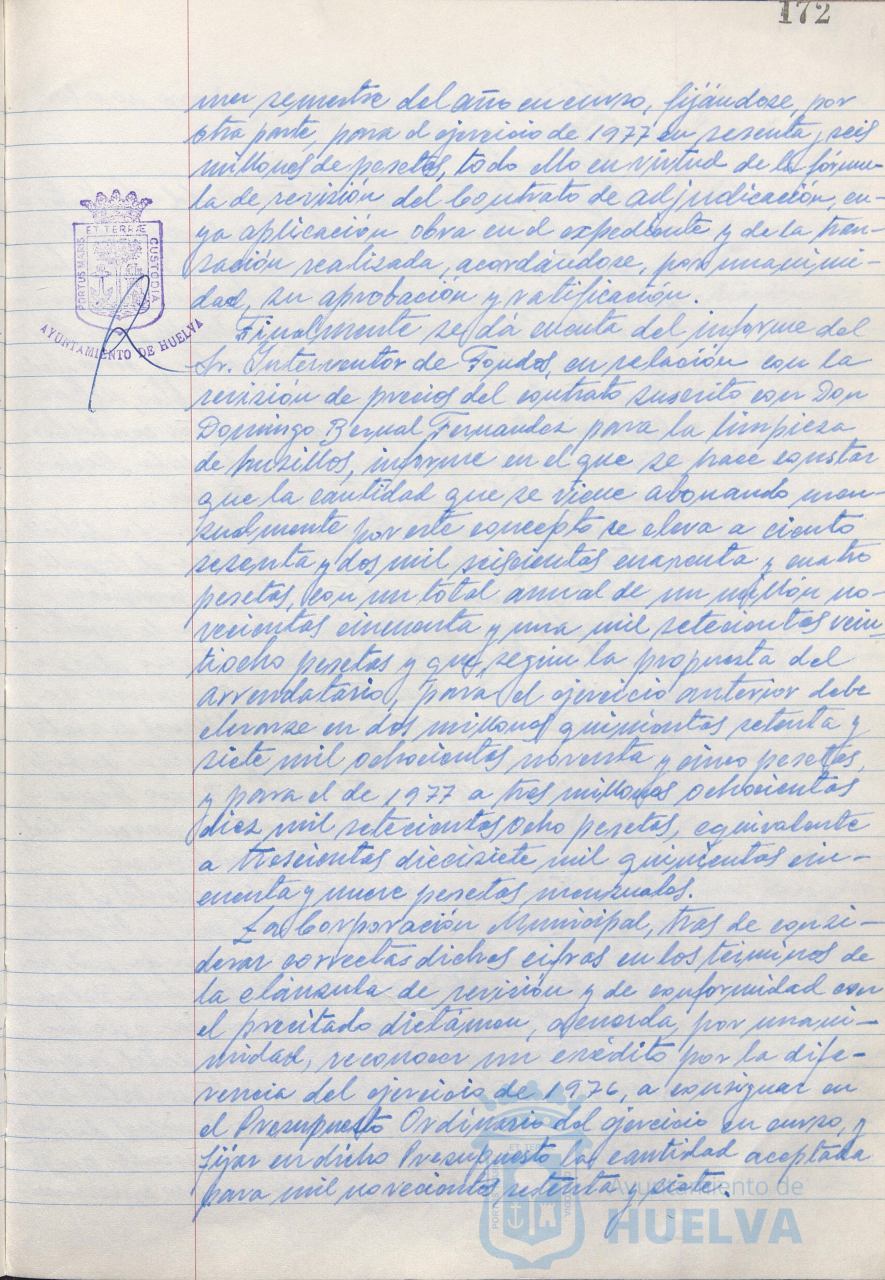 172
mer semestre del año en curso, fijándose, por
otra parte, para el ejercicio de 1977 en sesenta y seis
millones de pesetas, todo ello en virtud de la fórmu-
la de revisión del Contrato de adjudicación, cu-
ya aplicación obra en el expediente y de la tran-
sación realizada, acordándose, por unanimi-
dad, su aprobación y ratificación.
Finalmente se dá cuenta del informe del
Sr. Interventor de Fondos, en relación con la
revisión de precios del contrato suscrito con Don
Domingo Bernal Fernandez para la limpieza
de husillos, informe en el que se hace constar
que la cantidad que se viene abonando men-
sualmente por este concepto se eleva a ciento
sesenta y dos mil seiscientas cuarenta y cuatro
pesetas, con un total anual de un millón no-
vecientas cincuenta y una mil setecientas vein-
tiocho pesetas y que, segun la propuesta del
arrendatario, para el ejercicio anterior debe
elevarse en dos millones quinientas setenta y
siete mil ochocientas noventa y cinco pesetas,
y para el de 1977 a tres millones ochocientas
diez mil setecientas ocho pesetas, equivalente
a trescientas diecisiete mil quinientas cin-
cuenta y nueve pesetas mensuales.
La Corporación Municipal, tras de consi-
derar correctas dichas cifras en los términos de
la cláusula de revisión y de conformidad con
el precitado dictámen, acuerda, por unani-
midad, reconocer un crédito por la dife-
rencia del ejercicio de 1976, a consignar en
el Presupuesto Ordinario del ejercicio en curso, y
fijar en dicho Presupuesto la cantidad aceptada
para mil novecientos setenta y siete.
PORTUS MARIS
ET TERRÆ
CUSTODIA
AYUNTAMIENTO DE HUELVA
Ayuntamiento de
HUELVA